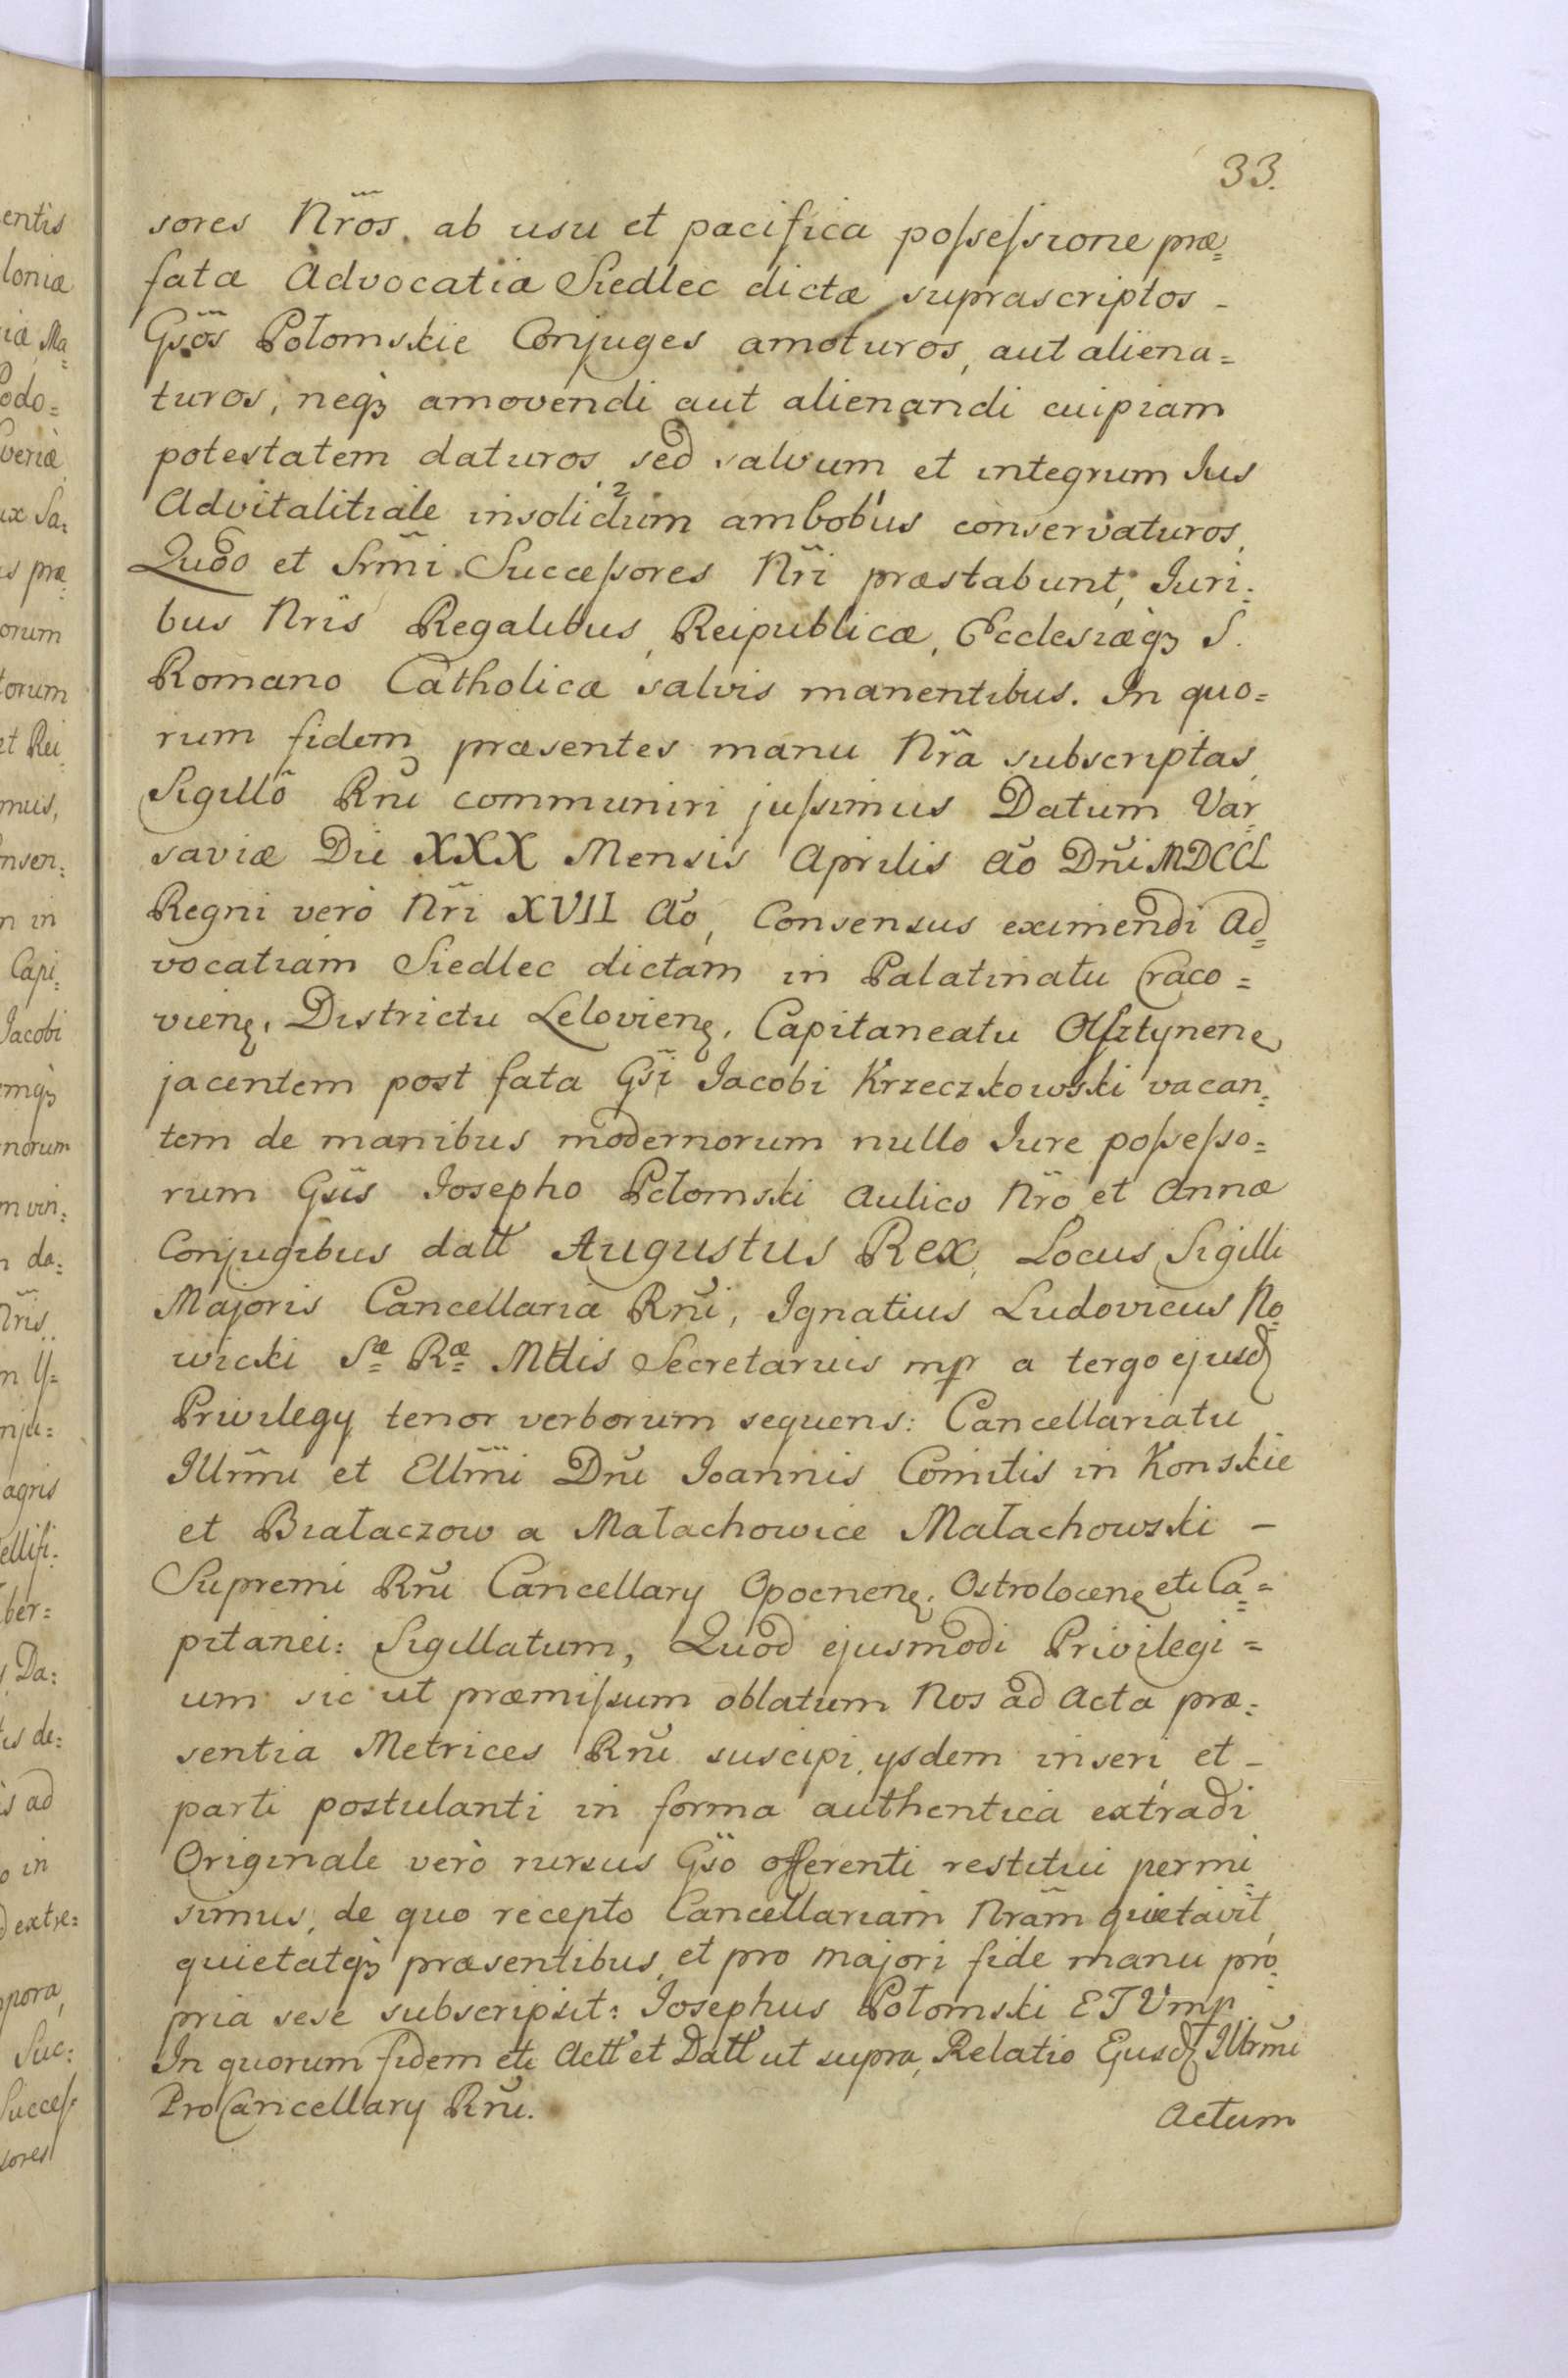 33.
sores Nr̃os. ab usu et pacifica poſseſsione præ=
fatæ Advocatiæ Siedlec dictæ suprascriptos -
Gsõs Potomskie Conjuges amoturos, aut aliena=
turos, neqꝫ amovendi aut alienandi cuipiam
potestatem daturos, sed salvum et integrum Jus
Advitalitiale insolidum ambobus conservaturos,
Quod et Srm̃i Succeſsores Nr̃i præstabunt, Juri:
bus Nr̃is Regalibus, Reipublicæ, Ecclesiæqꝫ S.
Romano Catholicæ salvis manentibus. In quo=
rum fidem præsentes manu Nr̃a subscriptas,
Sigillõ Rñi communiri juſsimus Datum Var
saviæ Die XXX Mensis Aprilis Aõ Dñi MDCCL
Regni verò Nr̃i XVII Aõ, Consensus eximendi Ad=
vocatiam Siedlec dictam in Palatinatu Craco=
vienȩ. Districtu Lelovienȩ. Capitaneatu Olſztynenȩ
jacentem post fata Gsĩ Jacobi Krzeczkowski vacan=
tem de manibus modernorum nullo Jure poſseſso=
rum Gsĩs Josepho Potomski Aulico Nr̃o et Annæ
Conjugibus datt Augustus Rex, Locus Sigilli
Majoris Cancellariæ Rñi, Ignatius Ludovicus No=
wicki Sæ Ræ Mttis Secretarius mp a tergo ejusd
Privilegy tenor verborum sequens: Cancellariatu
Illrm̃i et Ellm̃i Dñi Joannis Comitis in Konskie
et Białaczow a Małachowice Małachowski -
Supremi Rñi Cancellary Opocnenȩ. Ostrolocenȩ etc Ca=
pitanei: Sigillatum, Quod ejusmodi Privilegi=
um sic ut præmiſsum oblatum Nos ad Acta præ=
sentia Metrices Rñi suscipi, ysdem inseri et -
parti postulanti in forma authentica extradi
Originale verò rursus Gsõ offerenti restitui permi
simus, de quo recepto Cancellariam Nrãm quietavit,
quietatqꝫ præsentibus, et pro majori fide manu pro
pria sese subscripsit: Josephus Potomski ETVmp
In quorum fidem etc Actt et Datt ut supra, Relatio Ejusd Illrm̃i
ProCancellary Rñi.
Actum